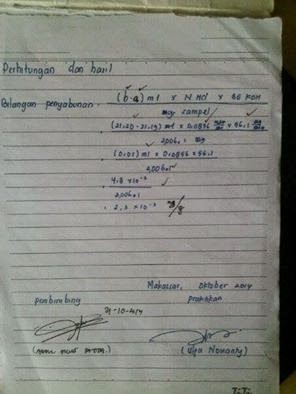 Perhitungan dan hasil
Bilangan penyabunan = (b-a) ml x N HCl x BE KOH
mg sampel
(21.20-21.19) ml x 0.0896 x 56.1
2006.1 mg
(0.01) ml x 0.0896 x 56.1
2006.1
4.8 x 10⁻²
2006.1
= 2.3 x 10⁻⁵ g/g
Makassar, Oktober 2014
Pembimbing Praktikan
21-10-2014